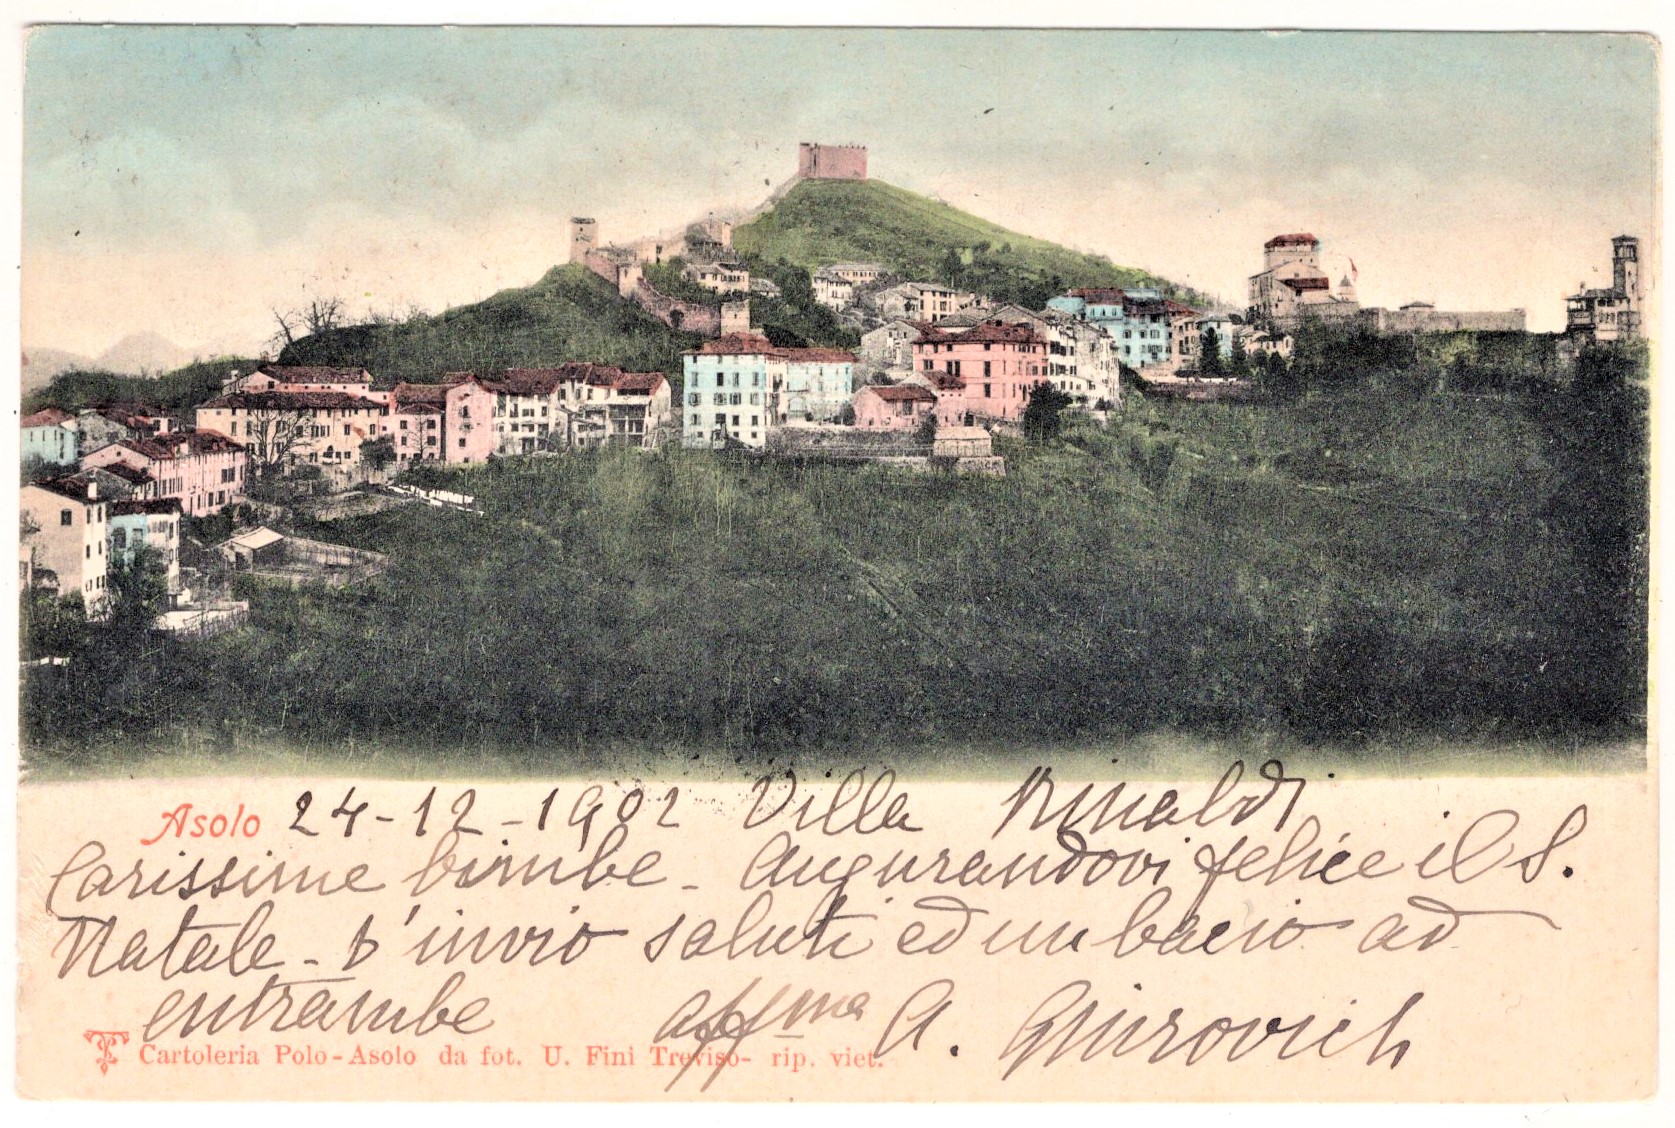 Asolo 24-12-1902 Villa Rinaldi
Carissime bimbe - Augurandovi felice il S.
Natale - v'invio saluti ed un bacio ad
entrambe affma A.
Cartoleria Polo-Asolo da fot. U. Fini Treviso- rip. viet.